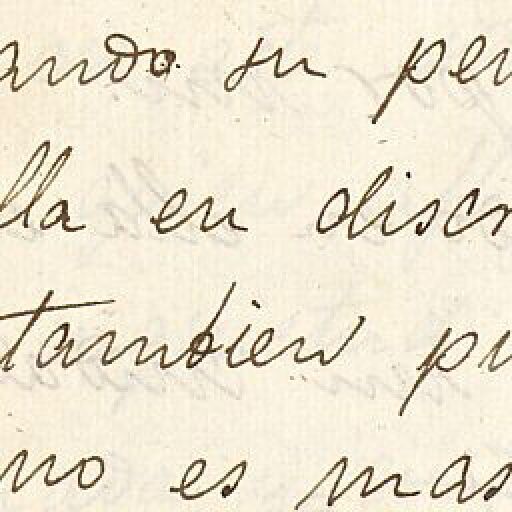 ando su pen
lla en discr
tambien pu
no es mas